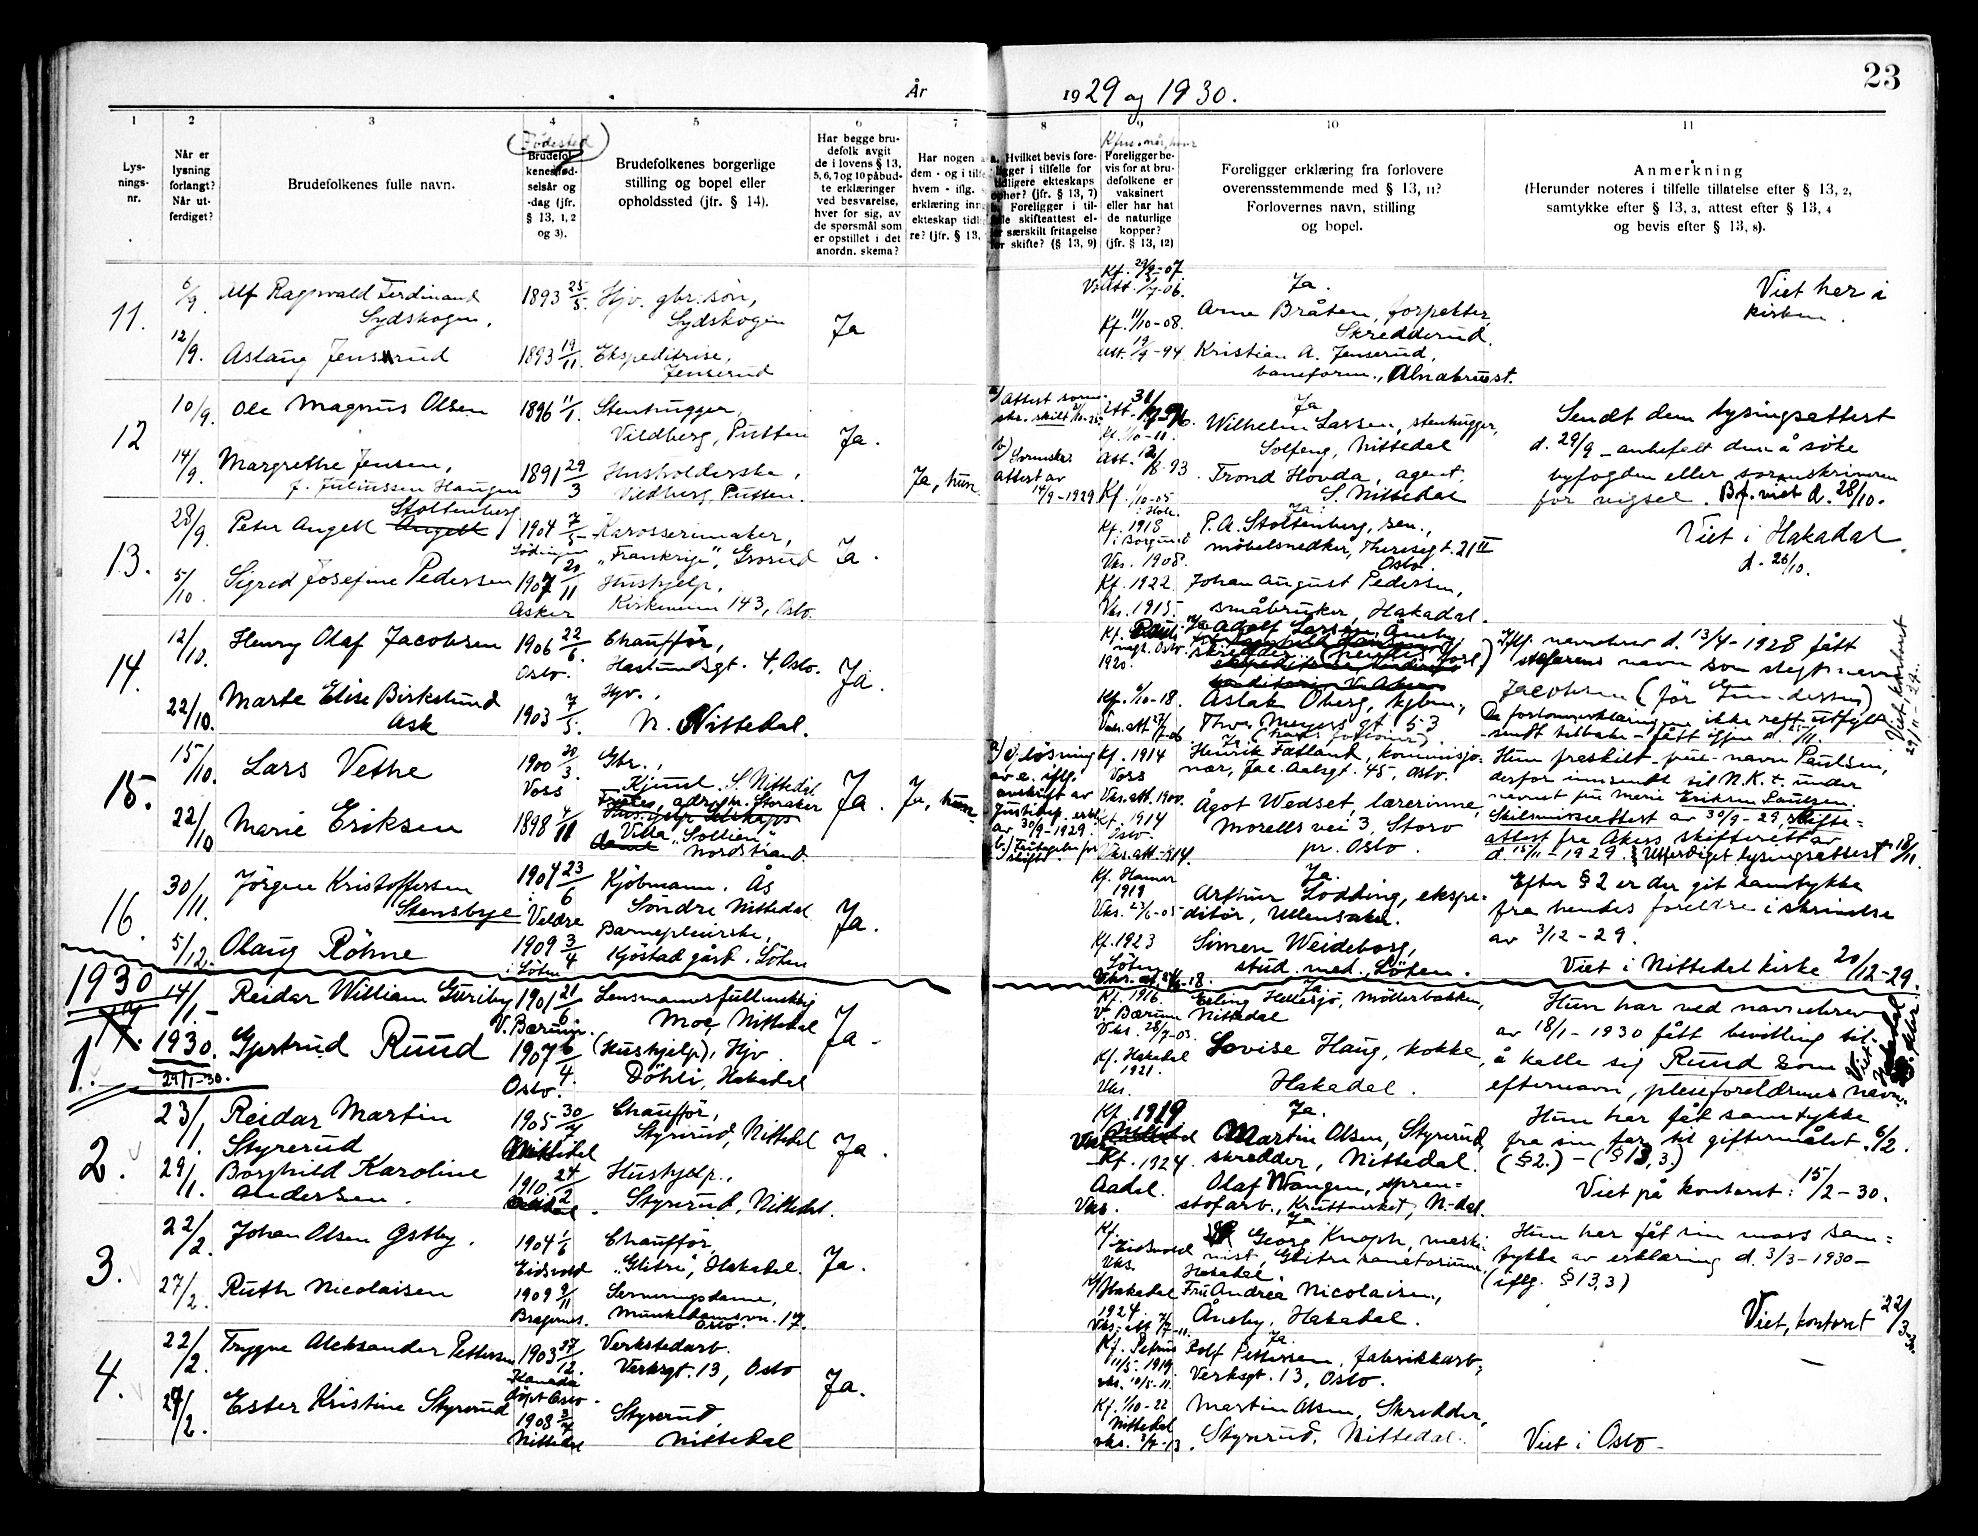 23
År
1929 og 1930.
1
2
3
4
5
6
7
8
9
10
11
Lys-
nings-
nr.
Når er
lysning
forlangt?
Når ut-
ferdiget?
Brudefolkenes fulle navn.
Fødested
Brudefol-
kenes fød-
selsår og
-dag (jfr.
§ 13, 1, 2
og 3).
Brudefolkenes borgerlige
stilling og bopel eller
opholdssted (jfr. § 14).
Har begge bru-
defolk avgit
de i lovens § 13,
5, 6, 7 og 10 påbud-
te erklæringer
ved besvarelse,
hver for sig, av
de spørsmål som
er opstillet i det
anordn. skema?
Har nogen a
dem - og i tilf
hvem - iflg.
erklæring inn
ekteskap tidl
re? (jfr. § 13,
Hvilket bevis fore-
ligger i tilfelle for
tidligere ekteskaps
opher? (jfr. § 13, 7)
Foreligger i til-
skifteattest el-
særskilt fritagelse
for skifte? (§ 13, 9)
Foreligger be-
vis for at bru-
defolkene er
vaksinert
eller har hat
de naturlige
kopper?
(jfr. § 13, 12)
Foreligger erklæring fra forlovere
overensstemmende med § 13, 11?
Forlovernes navn, stilling
og bopel.
Anmerkning
(Herunder noteres i tilfelle tillatelse efter § 13, 2,
samtykke efter § 13, 3, attest efter § 13, 4
og bevis efter § 13, 8).
11.
6/9
12/9.
Alf Ragnvald Ferdinand
Sydskogen,
Aslaug Jensrud
1893 25/5.
1893 19/11.
Hjv. gbr. søn,
Sydskogen
Ekspeditrise,
Jenserud
Ja
Kf. 11/10-08.
Ja.
Arne Bråten, forpakter,
Skredderud.
Kristian A. Jenserud,
baneform., Alnabru st.
Viet her i
kirken.
12
10/9.
14/9.
Ole Magnus Olsen
Margrethe Jensen,
f. Juliussen Haugen
1896 11/1.
1891 29/3
Stenhugger,
Vildberg, Putten
Husholderske,
Vildberg, Putten.
Ja.
Ja, hun.
attest av
14/9-1929
Ja
Wilhelm Larsen, stenhugger,
Solfeng, Nittedal
Trond Hovda, agent,
S. Nittedal
Sendt dem lysingsattest
d. 29/9 - anbefalt dem å søke
byfogden eller sorenskriveren
for vigsel. Bf. viet d. 28/10.
13.
28/9.
5/10
Peter Angell Angell
Stoltenberg
Sigrid Josefine Pedersen
1904 7/5-
1907 20/11
Asker
Karosserimaker,
"Frankrige", Grorud
Hushjelp,
Kirkeveien 143, Oslo.
Ja.
Kf. 1918
Vks. 1908.
Kf. 1922
Vks. 1915.
Ja.
P. A. Stoltenberg, sen.,
møbelsnedker, Theresegt. 21 II
Oslo.
Johan August Pedersen,
småbruker, Hakadal.
Viet i Hakadal
d. 26/10.
14.
12/10.
22/10.
Henry Olaf Jacobsen
Marte Elise Birkelund
Ask
1906 22/6.
Oslo.
1903 7/5.
Chauffør,
4, Oslo.
Hjv.,
N. Nittedal.
Ja.
Kf. 1/10-18.
Adolf Larsen, Åneby,
Aslak Oberg,
Thv. Meyers gt. 53
Iflg. navnebrev d. 13/4-1928 fått
stefarens navn som slegtsnavn
Jacobsen (før Gundersen)
Viet kontoret
29/11-29.
15.
15/10.
22/10
Lars Vethe
Marie Eriksen
1900 20/3.
Voss
1898 4/11
Gbr.,
Kjuul. S. Nittedal
Villa "Sollien"
Nordstrand
Ja.
Ja, hun.
av 30/9-1929.
Kf. 1914
Voss
Vks. att. 1900.
Kf. 1914
Oslo.
Ja
Henrik Fatland, kommisjo-
nær, Jac. Aalsgt. 45, Oslo.
Ågot Wedset, lærerinne,
Morells vei 3, Storo
pr. Oslo.
Hun fraskilt - pleie-navn Paulsen,
derfor innsendt til N.K.t. under
navnet fru Marie Eriksen Paulsen.
Skilsmisseattest av 30/9-29, skifte-
attest fra Akers skifterett av
d. 15/11-1929. Utferdiget lysningsattest 18/11.
16.
30/11.
5/12.
Jørgen Kristoffersen
Stensbye
Olaug Röhne
1904 23/6
Veldre
1909 3/4
i Löten
Kjøbmann, Ås
Søndre Nittedal
Barnepleierske,
Kjöstad gård, Löten
Ja.
Kf. Hamar
1919
Vks. 23/6-05
Kf. 1923
Löten
Ja.
Arthur Lodding, ekspe-
ditør, Ullensaker.
Simen Weideborg,
stud. med. Löten.
Efter § 2 er der git samtykke
fra hendes foreldre i skrivelse
av 3/12-29.
Viet i Nittedal kirke 20/12-29.
1930
1.
14/1.-
1930.
29/1-30.
Reidar William Guriby
Gjertrud Ruud
1901 21/6
V. Bærum.
1907 6/4.
Oslo.
Lensmannsfullmektig
Moe, Nittedal
(Hushjelp), Hjv.
Döhli, Hakadal
Ja.
Kf. 1916.
V. Bærum
Vks. 28/7-03.
Kf. Hakadal
1921.
Vks.
Ja.
Erling Hellesjø, Møllerbakken,
Nittedal
Lovise Haug, kokke,
Hakadal.
Hun har ved navnebrev
av 18/1-1930 fått bevilling til
å kalle sig Ruud som
efternavn, pleieforeldrenes navn.
2.
23/1
29/1.
Reidar Martin
Styrerud
Borghild Karoline
Andersen.
1905 30/4
Nittedal
1910 24/2
Chauffør,
Styrerud, Nittedal
Hushjelp,
Styrerud, Nittedal.
Ja.
Kf. 1919
Kf. 1924.
Aadal.
Vks.
Ja.
Martin Olsen, Styrerud,
skredder, Nittedal.
Olaf Wangen, spren-
stofarb., Kruttverket, N.-dal.
Hun har fåt samtykke
fra sin far til giftermålet. 6/2.
(§ 2.) - (§ 13, 3.)
Viet på kontoret: 15/2-30.
3.
22/2.
27/2.
Johan Olsen Østby.
Ruth Nicolaisen
1904 1/6
Eidsvold
1909 9/11
Bragernes.
Chauffør,
"Glitre", Hakadal.
Serveringsdame,
Munkedamsvn. 17.
Oslo.
Ja.
Kf.
Eidsvold
Vks.
Kf. Hakadal
1924.
Ja
Georg Knoph, maski-
nist, Glitre sanatorium,
Hakadal.
Fru Andrea Nicolaisen,
Åneby, Hakadal.
Hun har fåt sin mors sam-
tykke av erklæring d. 3/3-1930-
(iflg. § 13,3)
Viet, kontoret 22/3-30.
4.
22/2.
27/2.
Trygve Aleksander Pettersen
Ester Kristine Styrerud
1903 27/12.
Kanada
døpt Oslo.
1908 3/4
Nittedal
Verkstedarb.
Verksgt. 13, Oslo
Styrerud,
Nittedal
Ja.
Kf. Petrus
11/5. 1919
vks. 10/5-11.
Kf. 1/10-22
Nittedal
Ja.
Rolf Pettersen, fabrikkarb.,
Verksgt. 13, Oslo.
Martin Olsen, Skredder,
Styrerud, Nittedal.
Viet i Oslo-